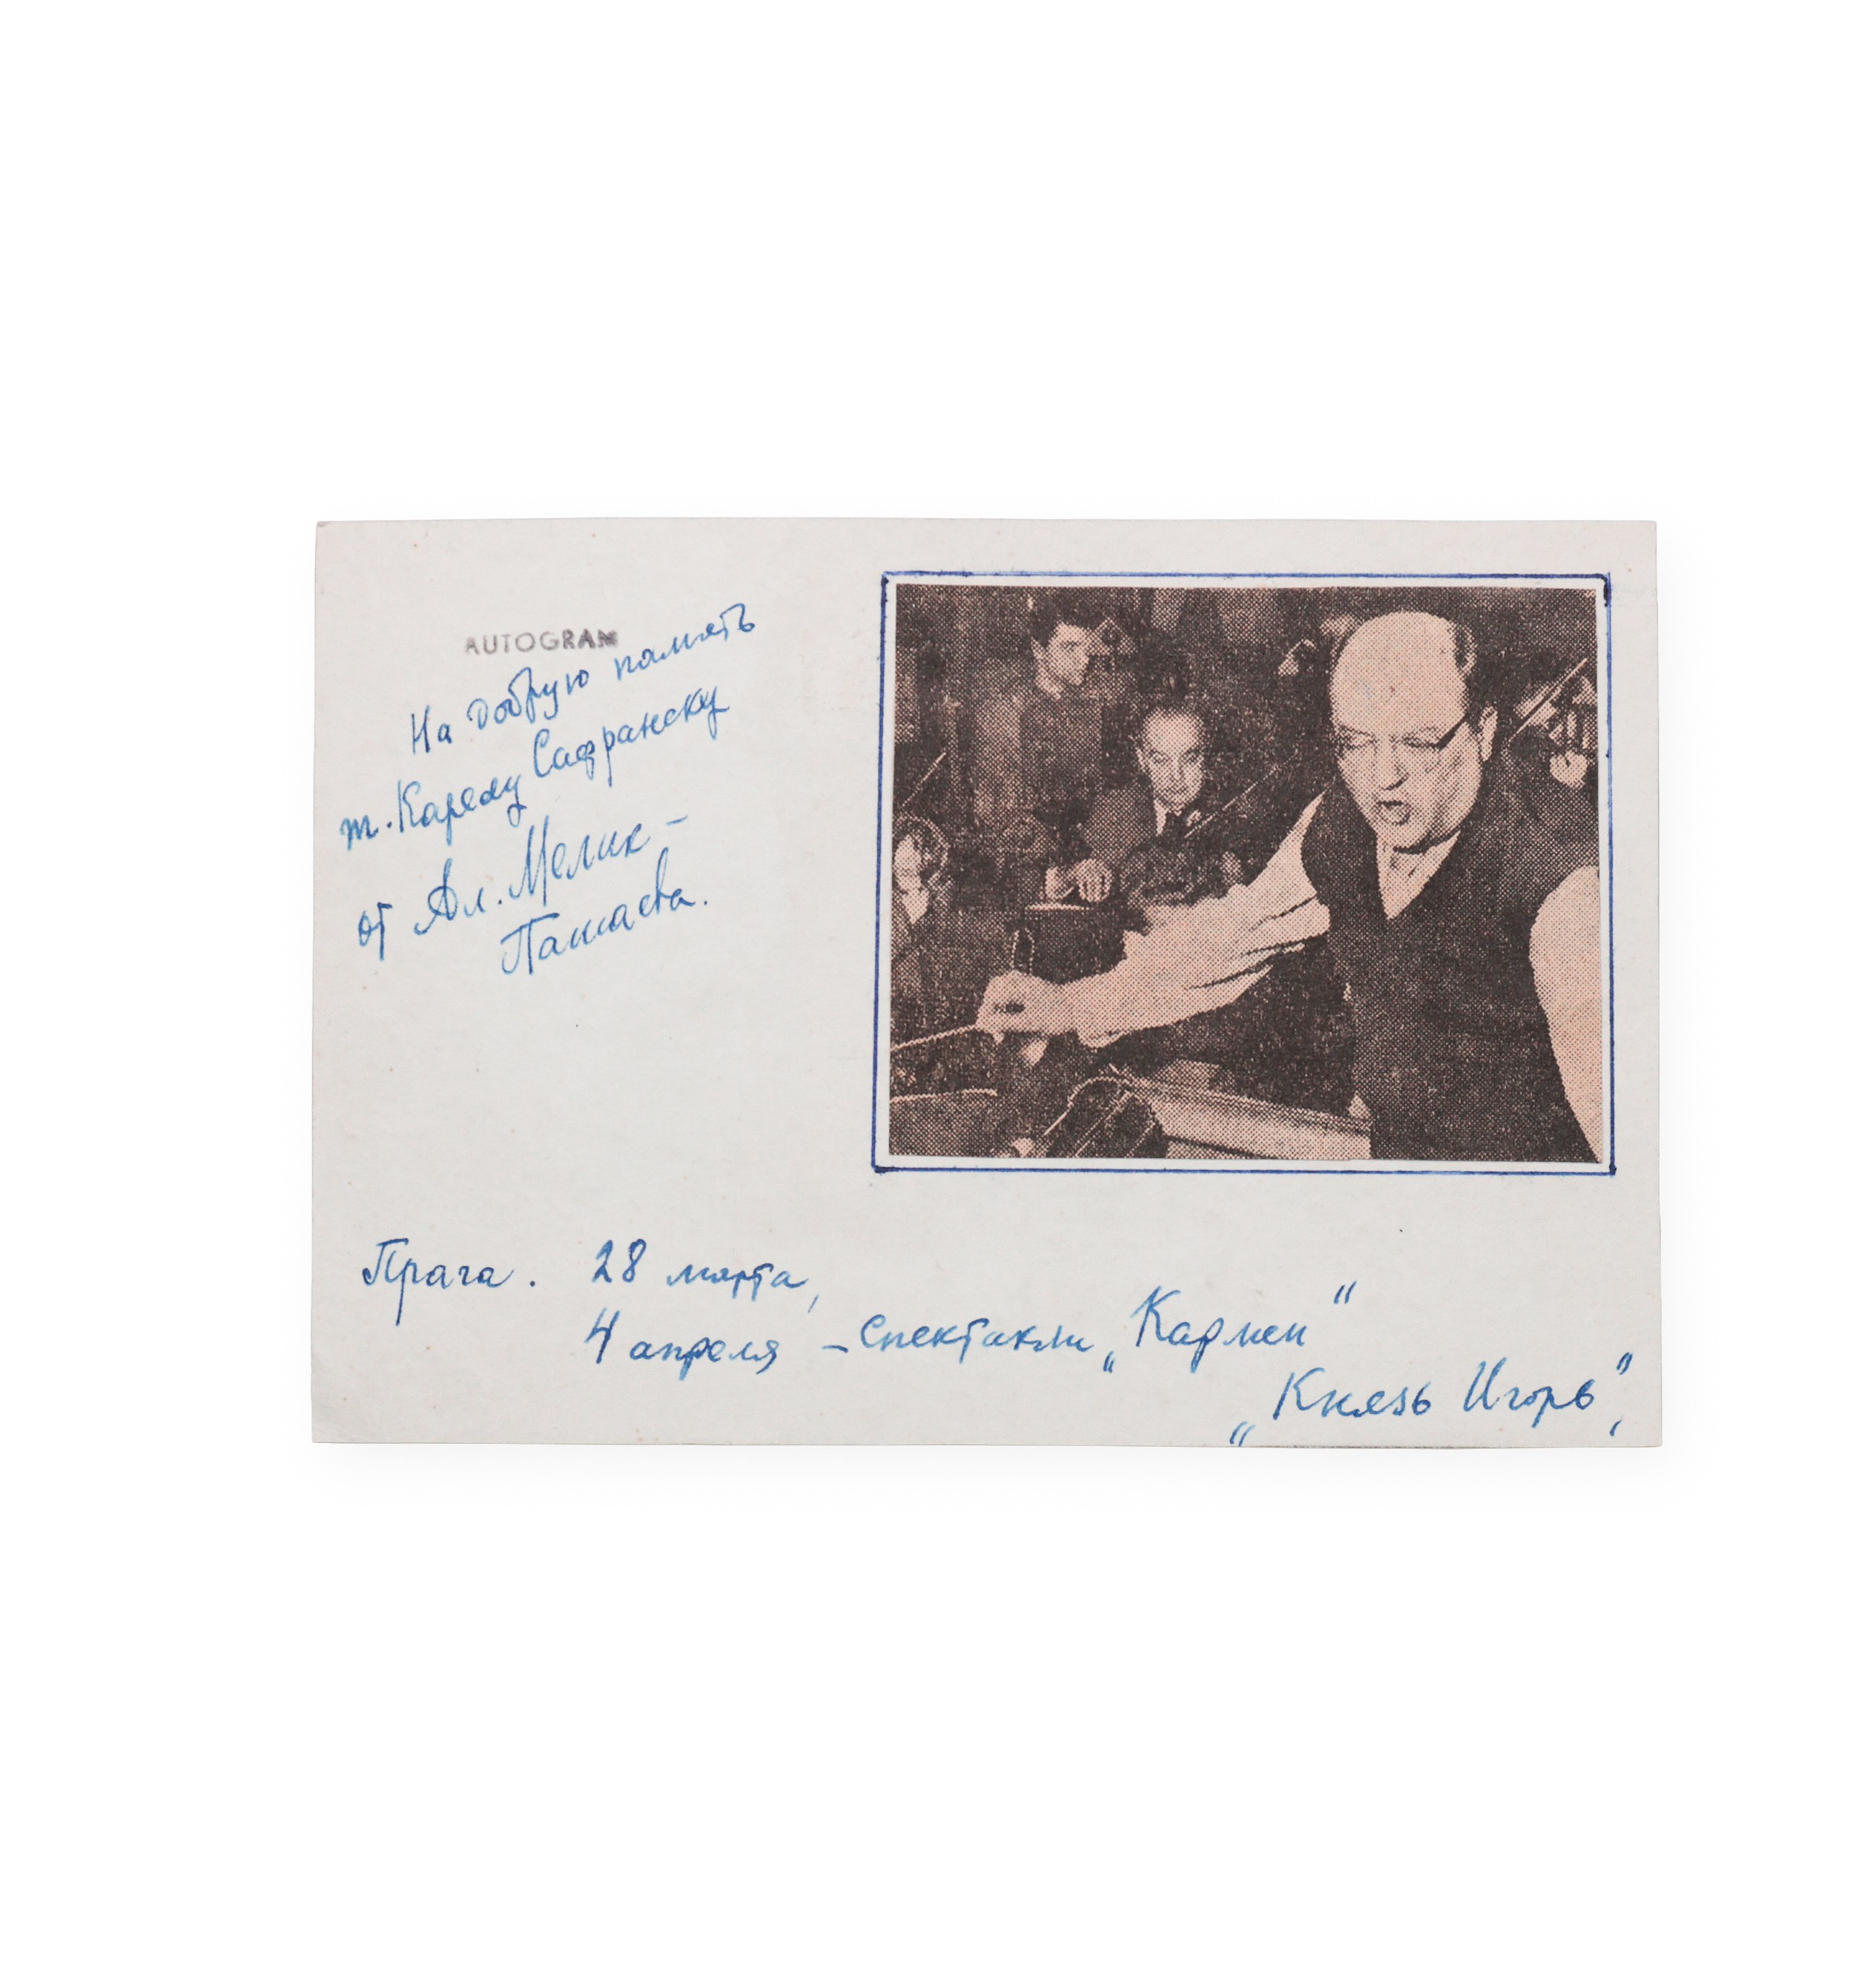 AUTOGRAM
На добрую память
т. Карелу Сафранеку
от Ал. Мелик-
Пашаева.
Прага. 28 марта,
4 апреля – спектакли „Кармен“
„Князь Игорь“,